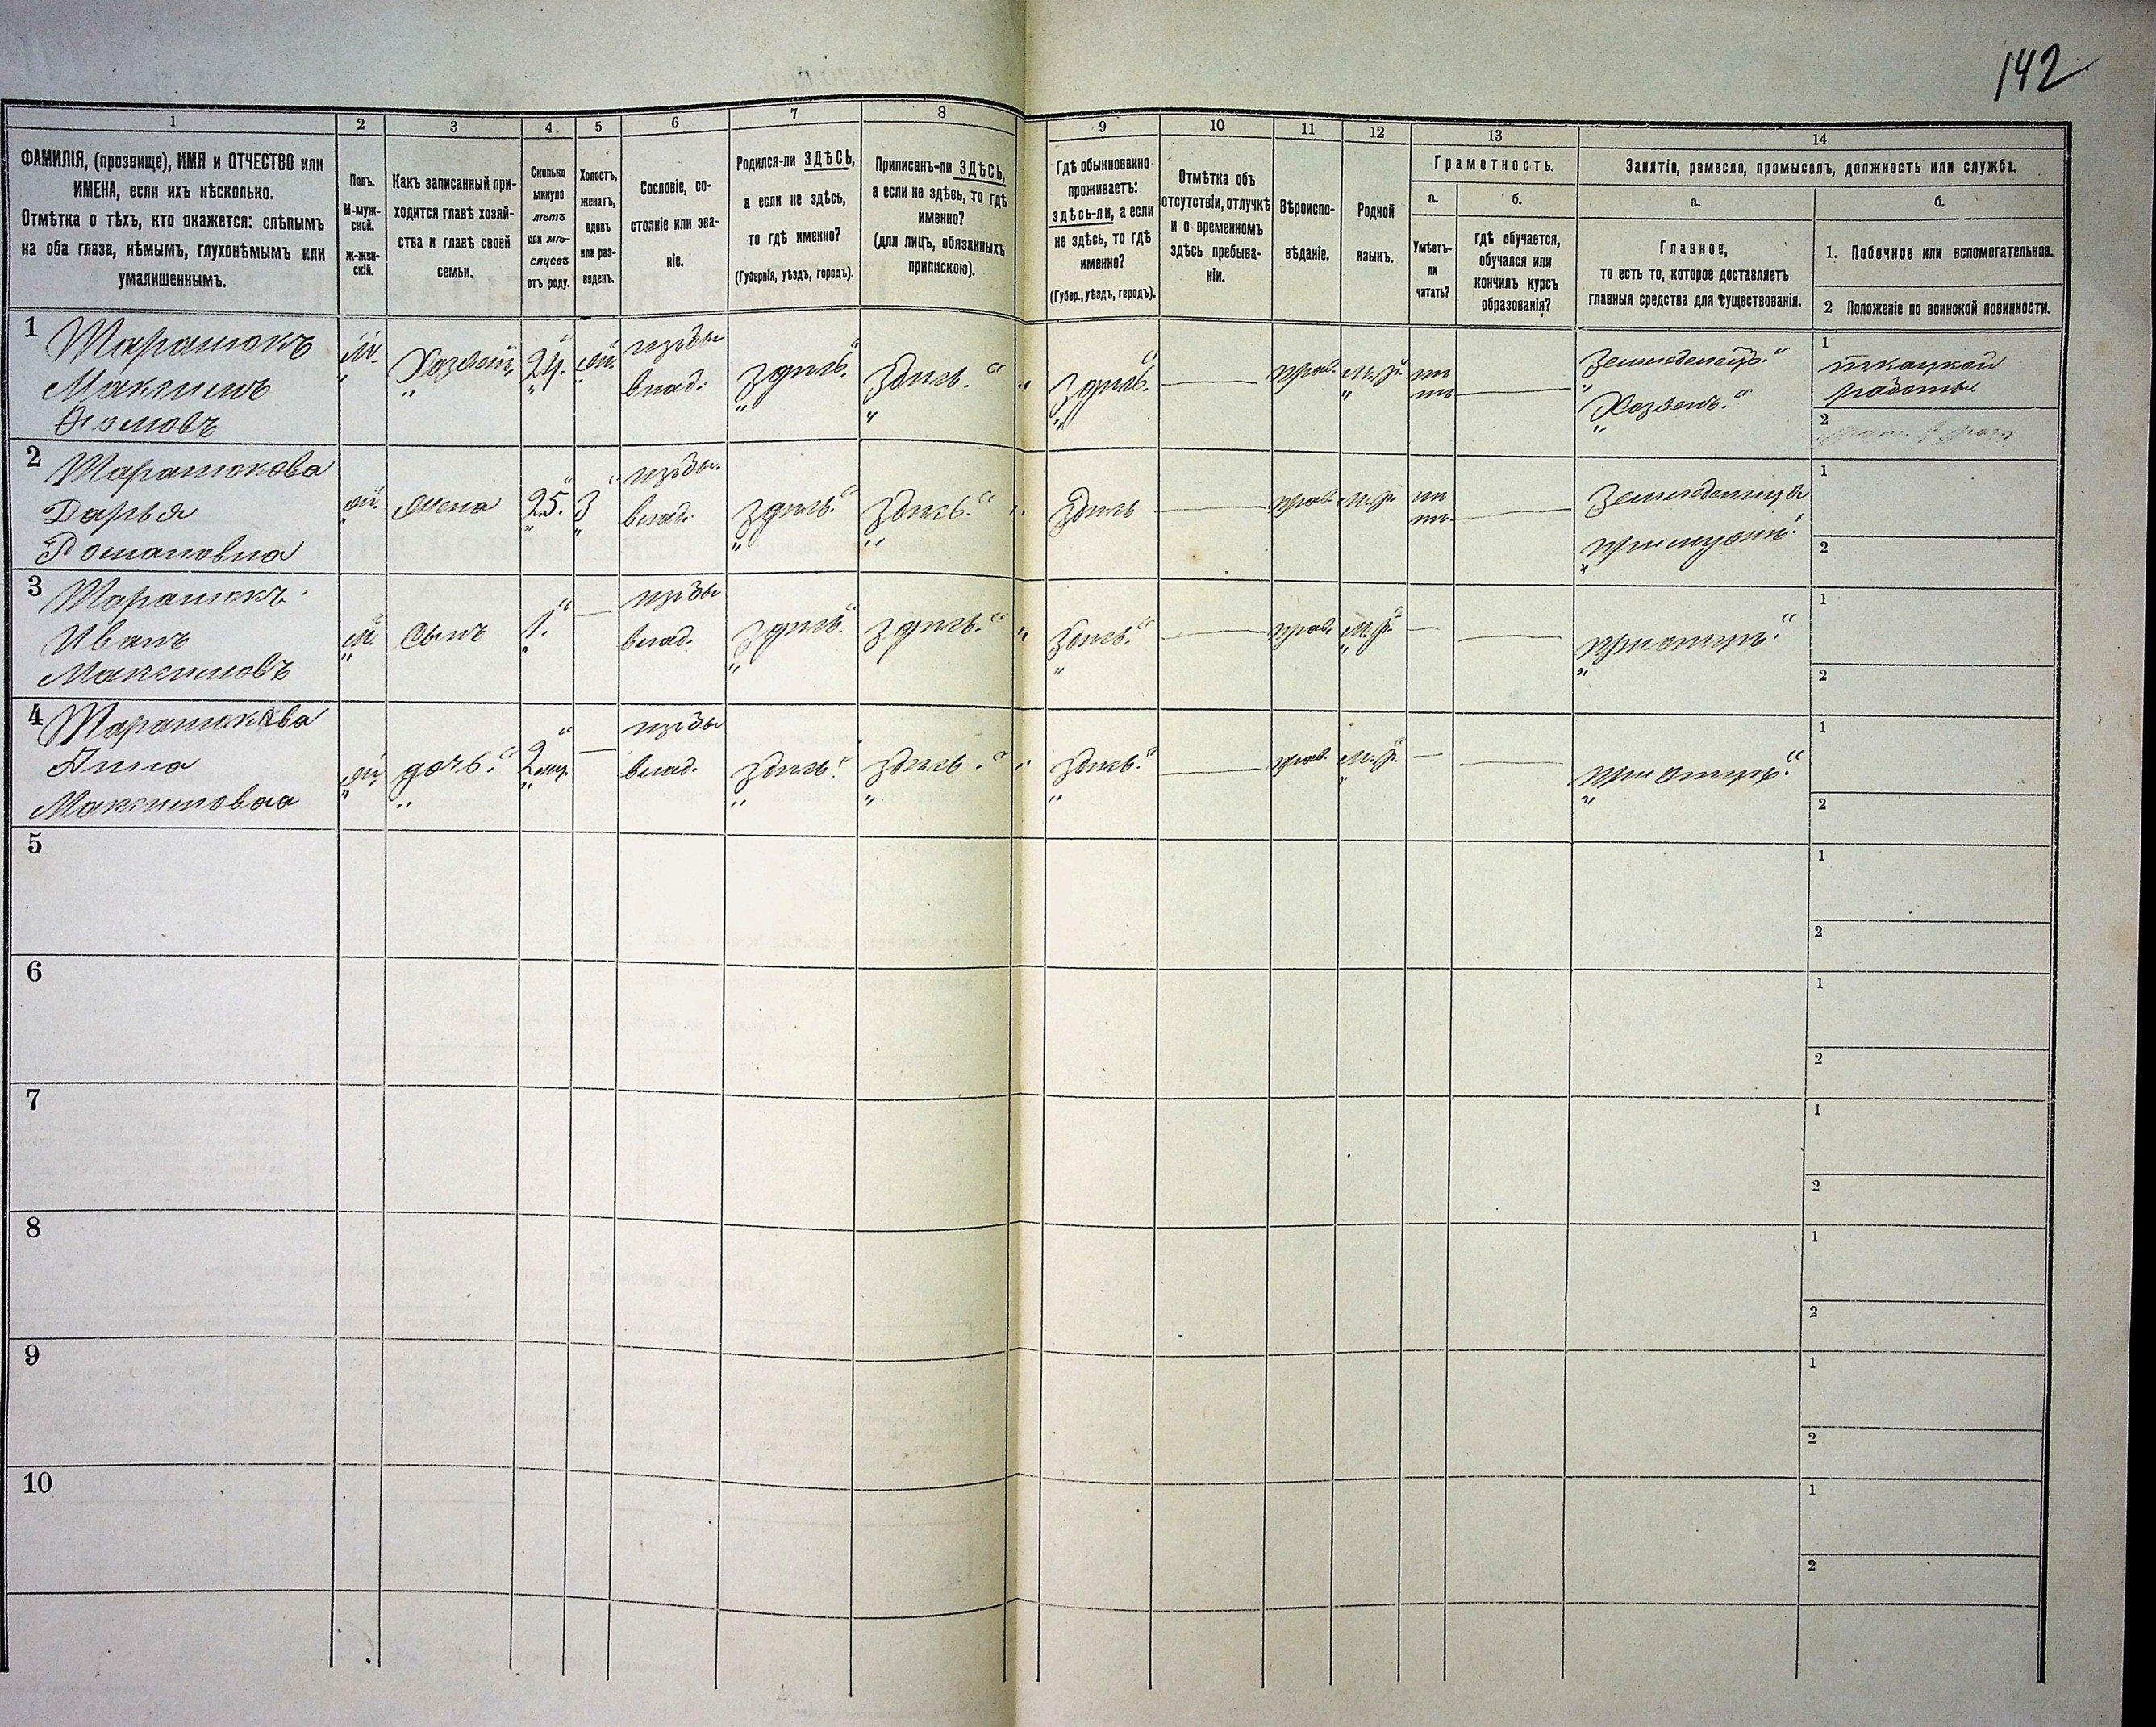 142
1 2 3 4 5 6 7 8 9 10 11 12 13 14
ФАМИЛІЯ, (прозвище), ИМЯ и ОТЧЕСТВО или
ИМЕНА, если ихъ нѣсколько.
Отмѣтка о тѣхъ, кто окажется: слѣпымъ
на оба глаза, нѣмымъ, глухонѣмымъ или
умалишеннымъ.
Полъ.
М-муж-
ской.
ж-жен-
скій.
Какъ записанный при-
ходится главѣ хозяй-
ства и главѣ своей
семьи.
Сколько
минуло
лѣтъ
или мѣ-
сяцевъ
отъ роду.
Холостъ,
женатъ,
вдовъ
или раз-
веденъ.
Сословіе, со-
стояніе или зва-
ніе.
Родился-ли ЗДѢСЬ,
а если не здѣсь,
то гдѣ именно?
(Губернія, уѣздъ, городъ).
Приписанъ-ли ЗДѢСЬ,
а если не здѣсь, то гдѣ
именно?
(для лицъ, обязанныхъ
припискою).
Гдѣ обыкновенно
проживаетъ:
здѣсь-ли, а если
не здѣсь, то гдѣ
именно?
(Губер., уѣздъ, городъ).
Отмѣтка объ
отсутствіи, отлучкѣ
и о временномъ
здѣсь пребыва-
ніи.
Вѣроиспо-
вѣданіе.
Родной
языкъ.
Грамотность.
а.
Умѣетъ-
ли
читать?
б.
гдѣ обучается,
обучался или
кончилъ курсъ
образованія?
Занятіе, ремесло, промыселъ, должность или служба.
а.
Главное,
то есть то, которое доставляетъ
главныя средства для существованія.
б.
1. Побочное или вспомогательное.
2 Положеніе по воинской повинности.
1 Тарасюкъ
Максимъ
Ѳомовъ
м. Хозяинъ 24. ж. изъ вы влад. здѣсь. здѣсь. здѣсь. прав. м.р. нѣтъ
Земледелецъ.
Хозяинъ.
1 ткацкой
работы
2
2 Тарасюкова
Дарья
Романовна
ж. жена 25. З изъ вы. влад. здѣсь. здѣсь. здѣсь прав. м.р. нѣтъ
Земледелица
при мужѣ.
1
2
3 Тарасюкъ
Иванъ
Максимовъ
м. сынъ 1. изъ вы влад. здѣсь. здѣсь. здѣсь. прав. м.р.
при отцѣ.
1
2
4 Тарасюкова
Анна
Максимовна
ж. дочь. 2 мѣс. изъ вы влад. здѣсь. здѣсь. здѣсь. прав. м.р.
при отцѣ.
1
2
5
1
2
6
1
2
7
1
2
8
1
2
9
1
2
10
1
2